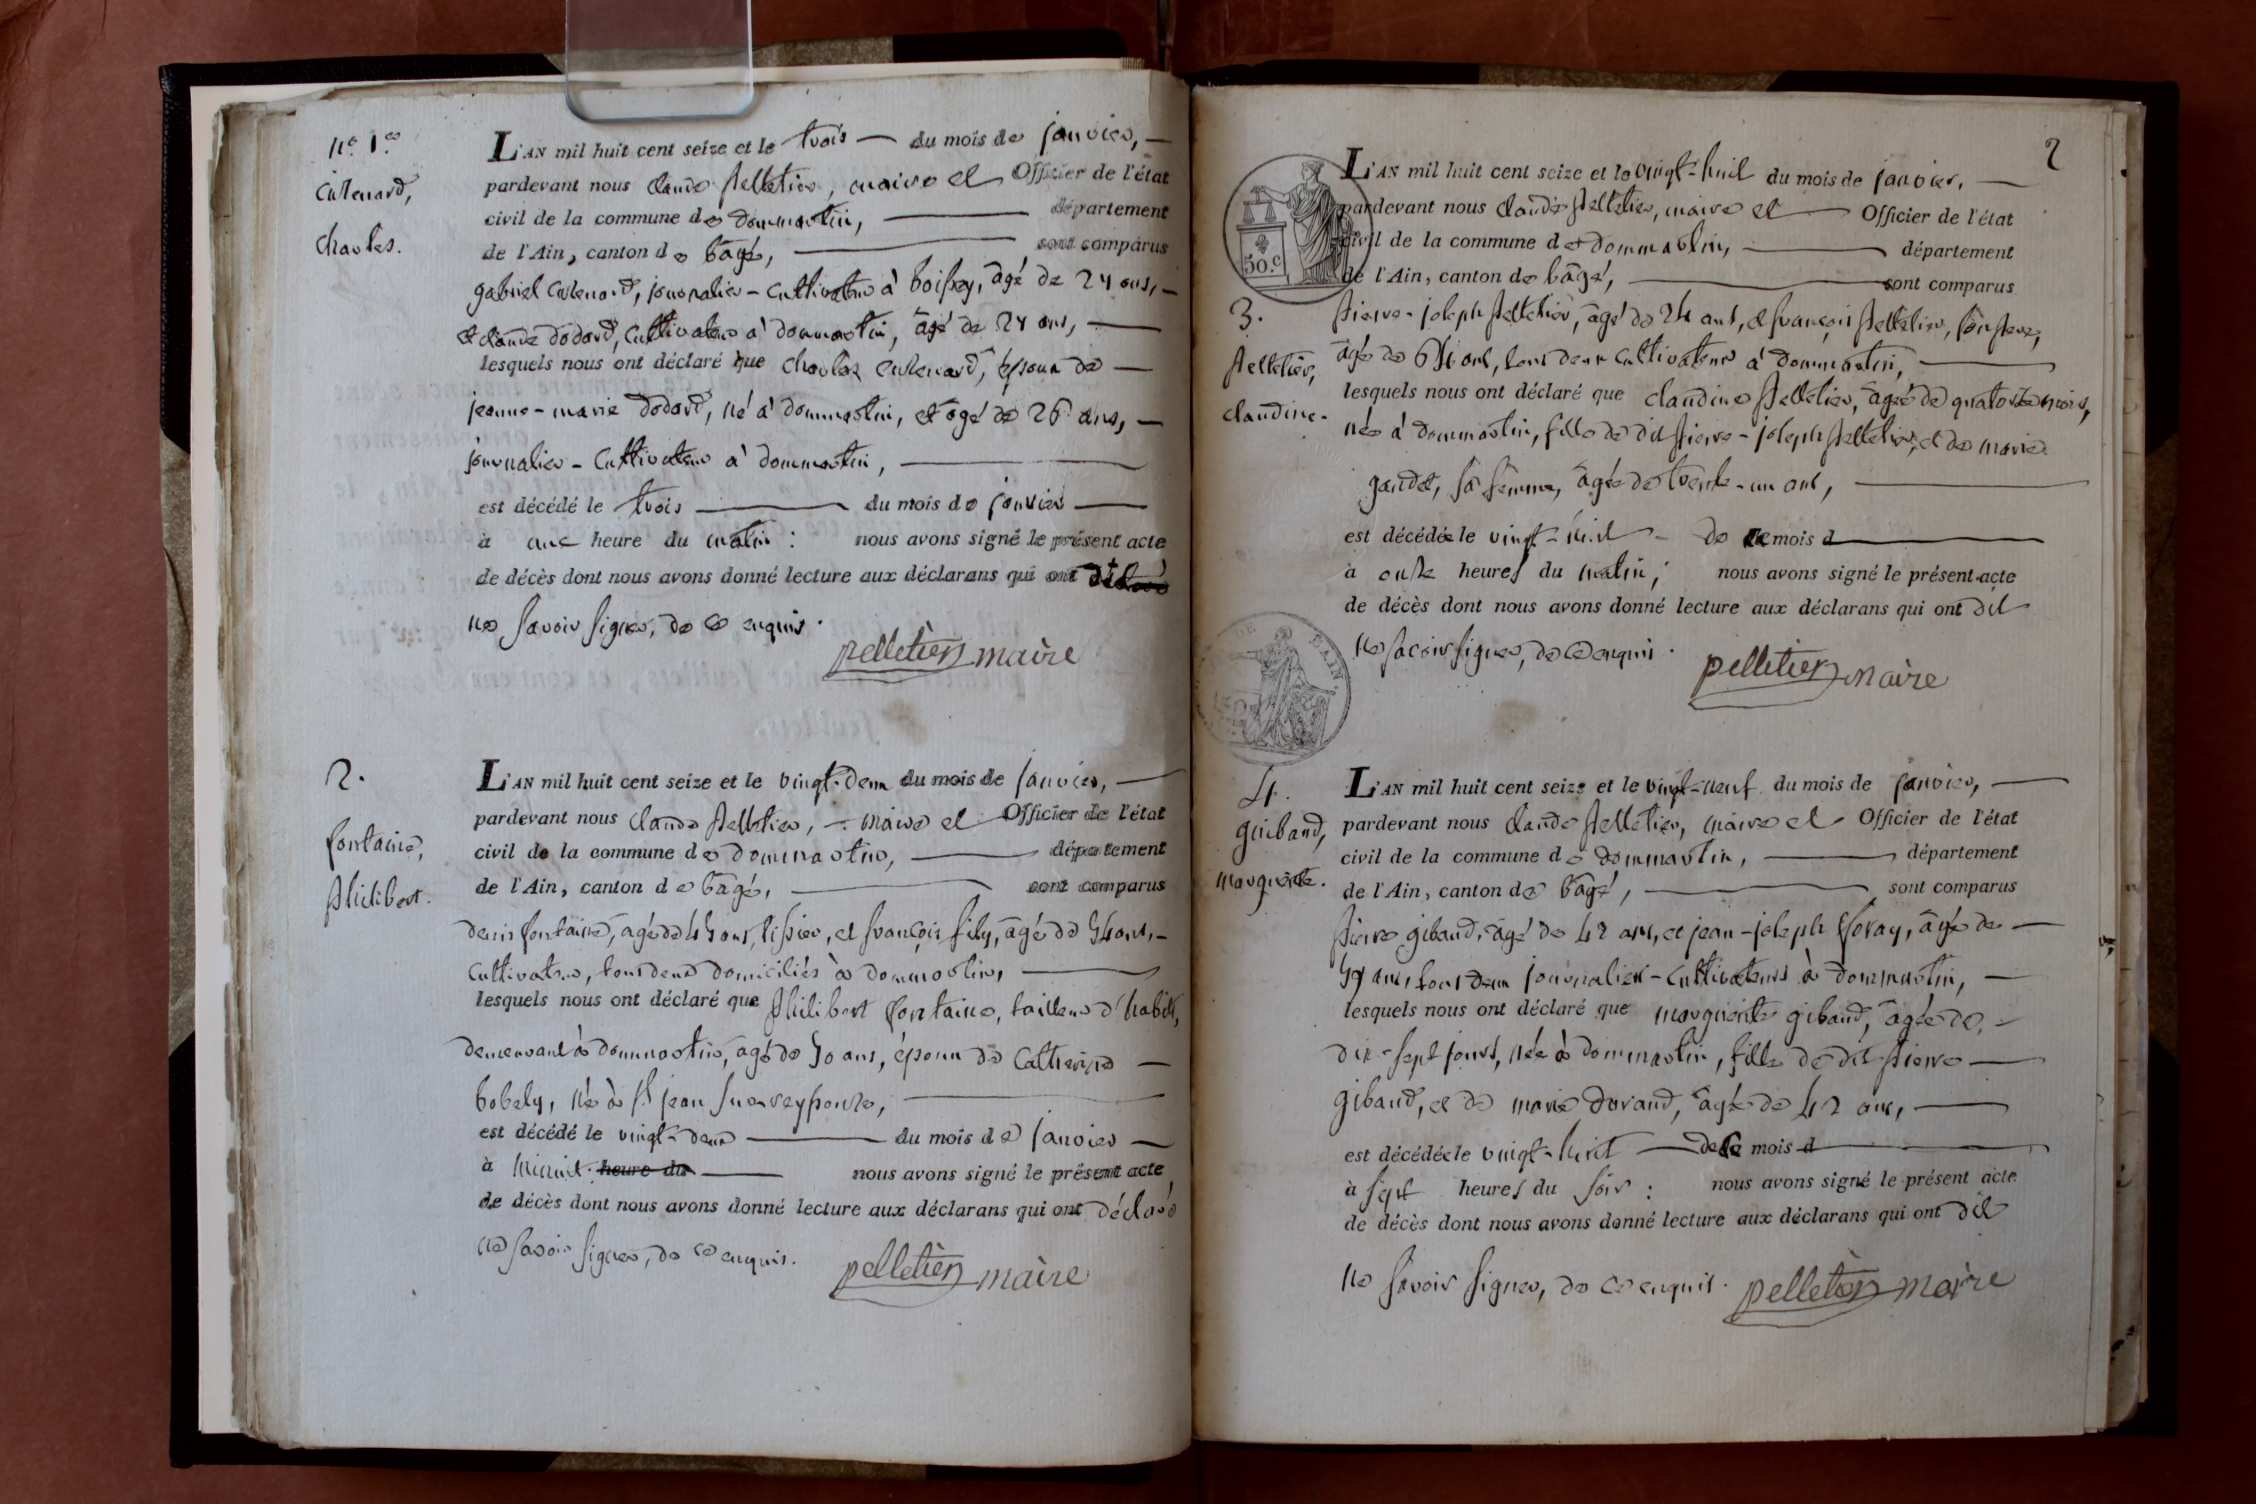 N.º 1.er
Cutenard,
Charles.
L'AN mil huit cent seize et le trois du mois de janvier,
pardevant nous Claude Pelletier, maire et Officier de l'état
civil de la commune de dommartin, département
de l'Ain, canton de bâgé, sont comparus
gabriel Cutenard, journalier-cultivateur à boissey, âgé de 24 ans,
et claude dodard, cultivateur à dommartin, âgé de 24 ans,
lesquels nous ont déclaré que Charles Cutenard, époux de
jeanne-marie dodard, né à dommartin, et âgé de 26 ans,
journalier-cultivateur à dommartin,
est décédé le trois du mois de janvier
à une heure du matin : nous avons signé le présent acte
de décès dont nous avons donné lecture aux déclarans qui ont dit
ne savoir signer, de ce enquis.
pelletier maire
2.
fontaine,
Philibert.
L'AN mil huit cent seize et le vingt-deux du mois de janvier,
pardevant nous Claude Pelletier, maire et Officier de l'état
civil de la commune de dommartin, département
de l'Ain, canton de bâgé, sont comparus
denis fontaine, âgé de 45 ans, tissier, et françois fily, âgé de 54 ans,
cultivateur, tous deux domiciliés à dommartin,
lesquels nous ont déclaré que Philibert fontaine, tailleur d'habits,
demeurant à dommartin, âgé de 50 ans, époux de Catherine
bobely, né à St jean sur reyssouze,
est décédé le vingt-deux du mois de janvier
à minuit heure du nous avons signé le présent acte
de décès dont nous avons donné lecture aux déclarans qui ont déclaré
ne savoir signer, de ce enquis.
pelletier maire
2
50.c
L'AN mil huit cent seize et le vingt-huit du mois de janvier,
pardevant nous Claude Pelletier, maire et Officier de l'état
civil de la commune de dommartin, département
de l'Ain, canton de bâgé, sont comparus
3.
Pelletier,
claudine.
Pierre-joseph Pelletier, âgé de 24 ans, et françois Pelletier, son père,
âgé de 64 ans, tous deux cultivateurs à dommartin,
lesquels nous ont déclaré que claudine Pelletier, âgée de quatorze mois,
née à dommartin, fille de dit Pierre-joseph Pelletier, et de marie
gaudet, sa femme, âgée de trente-un ans,
est décédée le vingt-huit de ce mois d
à onze heures du matin; nous avons signé le présent acte
de décès dont nous avons donné lecture aux déclarans qui ont dit
ne savoir signer, de ce enquis.
pelletier maire
DE L'AIN.
4.
guiband,
marguerite.
L'AN mil huit cent seize et le vingt-neuf du mois de janvier,
pardevant nous Claude Pelletier, maire et Officier de l'état
civil de la commune de dommartin, département
de l'Ain, canton de bâgé, sont comparus
Pierre giband, âgé de 42 ans, et jean-joseph foray, âgé de
57 ans, tous deux journaliers-cultivateurs à dommartin,
lesquels nous ont déclaré que marguerite giband, âgée de
dix-sept jours, née à dommartin, fille de dit Pierre
giband, et de marie durand, âgée de 42 ans,
est décédée le vingt-huit de ce mois d
à sept heures du soir : nous avons signé le présent acte
de décès dont nous avons donné lecture aux déclarans qui ont dit
ne savoir signer, de ce enquis.
pelletier maire